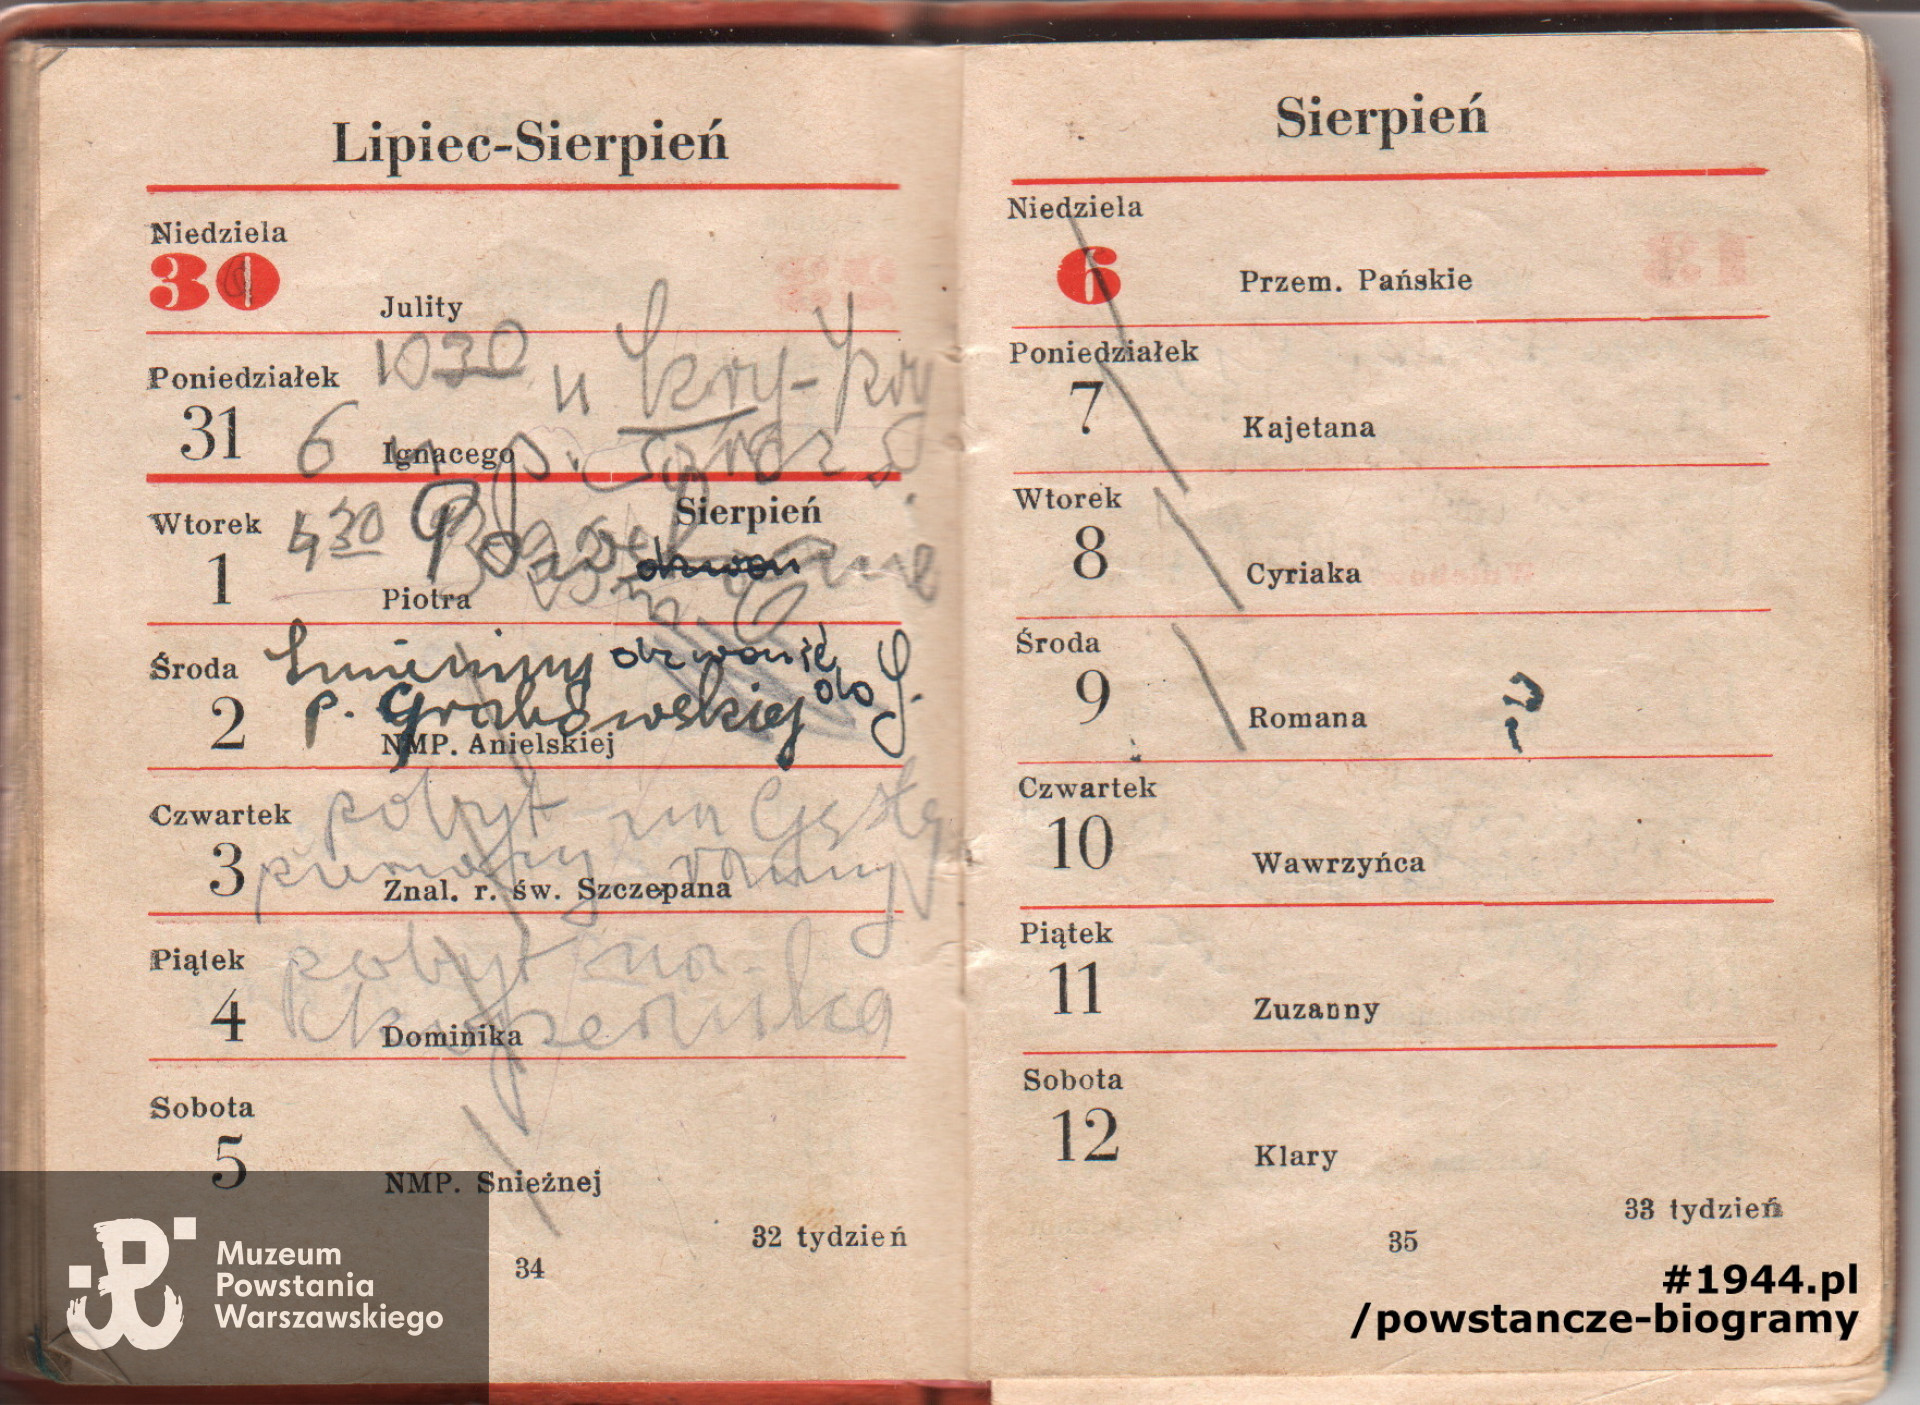 Lipiec-Sierpień
Niedziela
30
Julity
Poniedziałek
1030 u
31
6 Ignacego
Wtorek
430
Sierpień
1
Piotra
Środa
Imieniny dzwonić
2
p. Grabowskiej do J.
NMP. Anielskiej
Czwartek
pobyt na Gęstej
3
ranny
Znal. r. św. Szczepana
Piątek
pobyt na
4
Dominika
Sobota
5
NMP. Snieżnej
32 tydzień
34
Sierpień
Niedziela
6
Przem. Pańskie
Poniedziałek
7
Kajetana
Wtorek
8
Cyriaka
Środa
9
Romana
Czwartek
10
Wawrzyńca
Piątek
11
Zuzanny
Sobota
12
Klary
33 tydzień
35
Muzeum
Powstania
Warszawskiego
#1944.pl
/powstancze-biogramy